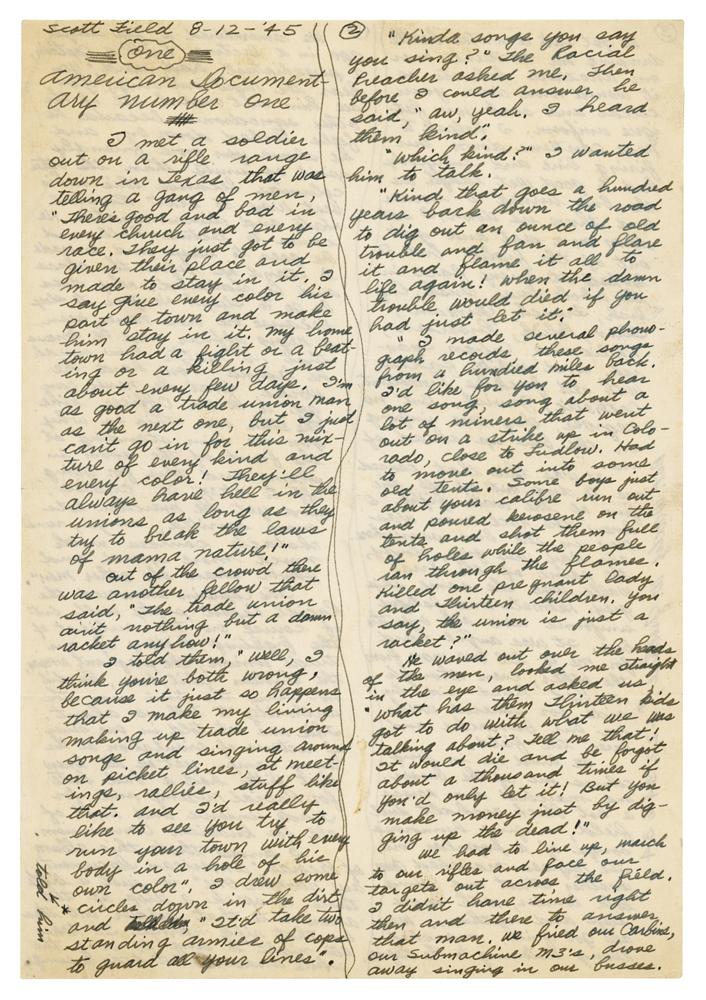 Scott Field 8-12-'45
One
American Document-
ary number one
I met a soldier
out on a rifle range
down in Texas that was
telling a gang of men,
"There's good and bad in
every church and every
race. They just got to be
given their place and
made to stay in it. I
say give every color his
part of town and make
him stay in it. My home
town had a fight or a beat-
ing or a killing just
about every few days. I'm
as good a trade union man
as the next one, but I just
can't go in for this mix-
ture of every kind and
every color! They'll
always have hell in the
unions as long as they
try to break the laws
of mama nature!"
Out of the crowd there
was another fellow that
said, "The trade union
ain't nothing but a damn
racket anyhow!"
I told them, "Well, I
think you're both wrong,
because it just so happens
that I make my living
making up trade union
songs and singing around
on picket lines, at meet-
ings, rallies, stuff like
that. And I'd really
like to see you try to
run your town with every
body in a hole of his
own color". I drew some
circles down in the dirt
and "It'd take two
standing armies of cops
to guard all your lines".
* told him
2
"Kinda songs you say
you sing?" The Racial
Preacher asked me. Then
before I could answer he
said, "aw, yeah. I heard
them kind".
"Which kind?" I wanted
him to talk.
"Kind that goes a hundred
years back down the road
to dig out an ounce of old
trouble and fan and flare
it and flame it all to
life again! When the damn
trouble would died if you
had just let it."
"I made several phono-
graph records, these songs
from a hundred miles back.
I'd like for you to hear
one song song about a
lot of miners that went
out on a strike up in Colo-
rado, close to Ludlow. Had
to move out into some
old tents. Some boys just
about your calibre run out
and poured kerosene on the
tents and shot them full
of holes while the people
ran through the flames.
Killed one pregnant lady
and Thirteen children. You
say, the union is just a
racket?"
He waved out over the heads
of the men, looked me straight
in the eye and asked us,
"What has them Thirteen kids
got to do with what we was
talking about? Tell me that!
It would die and be forgot
about a thousand times if
you'd only let it! But you
make money just by dig-
ging up the dead!"
We had to line up, march
to our rifles and face our
targets out across the field.
I didn't have time right
then and there to answer
that man. We fired our Carbins,
our Submachine M3's, drove
away singing in our busses.